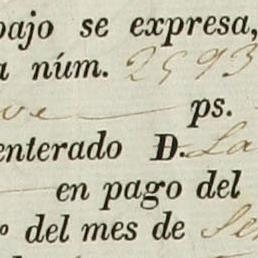 bajo se expresa,
a núm. 2593
ve ps.
enterado D. La
en pago del
º del mes de Se